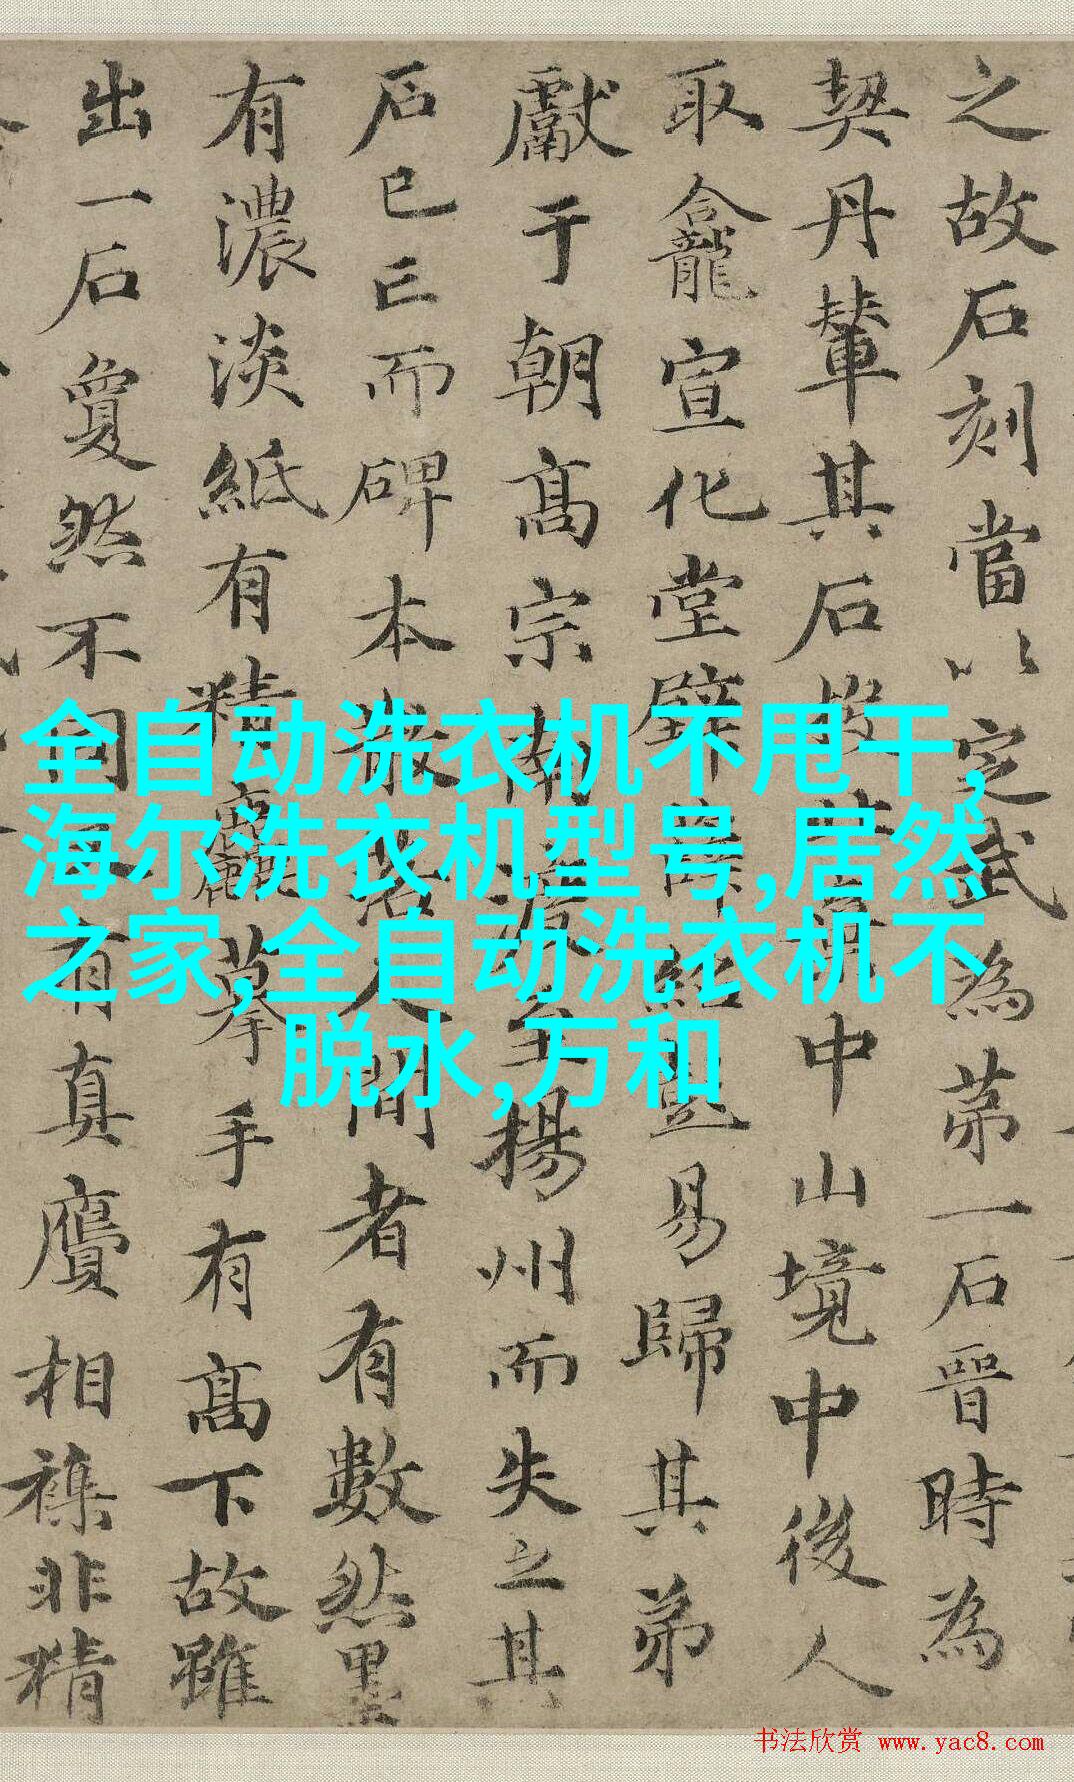 之故石刻當以定武為苐一石晉時為
契丹輦其石投其中山境中後人
取龕宣化堂壁薛紹易歸其弟
獻于朝高宗南渡至揚州而失之其
石已亡而碑本散落人間者有數然墨
有濃淡紙有精麤摹手有高下故雖
出一石敻然不同有真贗相襍非精
全自动洗衣机不甩干,
海尔洗衣机型号,居然
之家,全自动洗衣机不
脱水,万和
书法欣赏 www.yac8.com